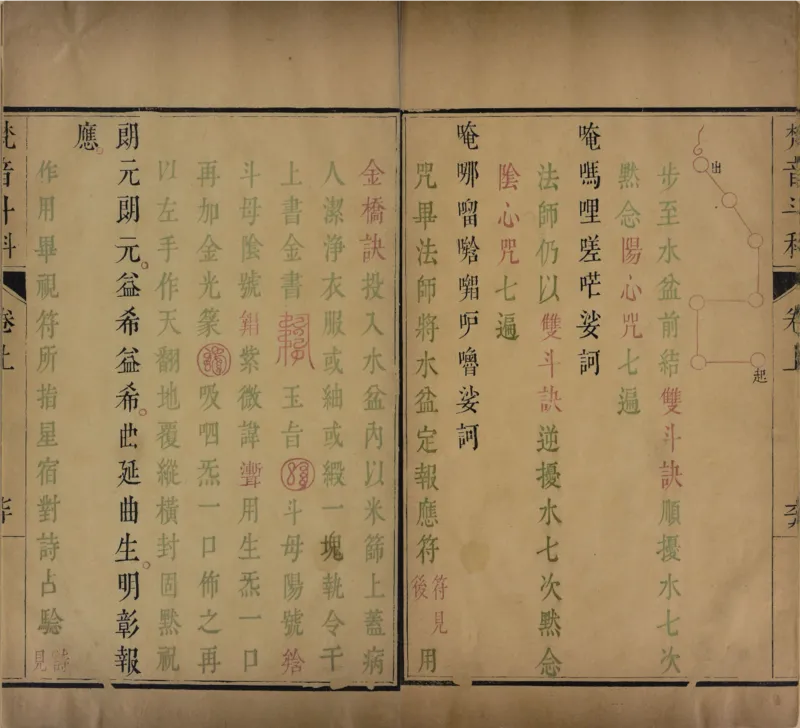 梵音斗科
卷上
出
起
步至水盆前結雙斗訣順擾水七次
黙念陽心咒七遍
唵嗎哩嗟咜娑訶
法師仍以雙斗訣逆擾水七次黙念
陰心咒七遍
唵哪𠺕娑訶
咒畢法師將水盆定報應符符見後用
金橋訣投入水盆內以米篩上蓋病
人潔淨衣服或紬或緞一塊執令于
上書金書玉旨斗母陽號
斗母陰號紫微諱用生炁一口
再加金光篆吸呬炁一口佈之再
以左手作天翻地覆縱橫封固黙祝
朗元朗元益希益希曲延曲生明彰報
應
作用畢視符所指星宿對詩占驗詩見
梵音斗科
卷上